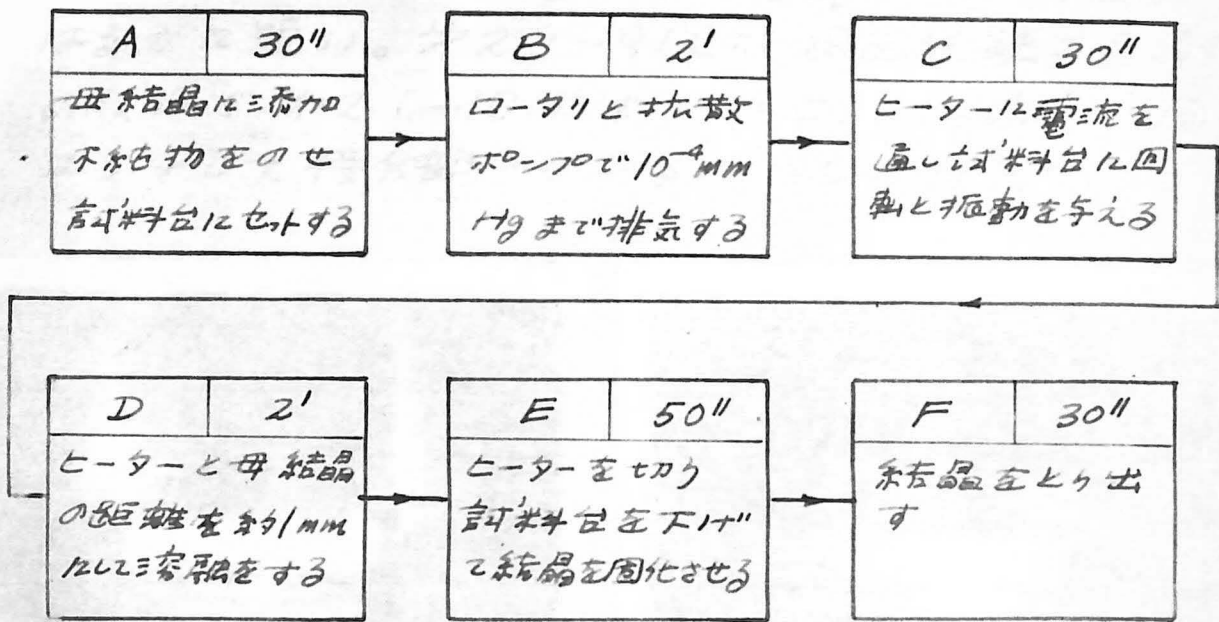 A 30"
母結晶に添加
不純物をのせ
試料台にセットする
B 2'
ロータリと拡散
ポンプで10⁻⁴mm
Hgまで排気する
C 30"
ヒーターに電流を
通し試料台に回
転と振動を与える
D 2'
ヒーターと母結晶
の距離を約1mm
にして溶融をする
E 50"
ヒーターを切り
試料台を下げ
て結晶を固化させる
F 30"
結晶をとり出
す